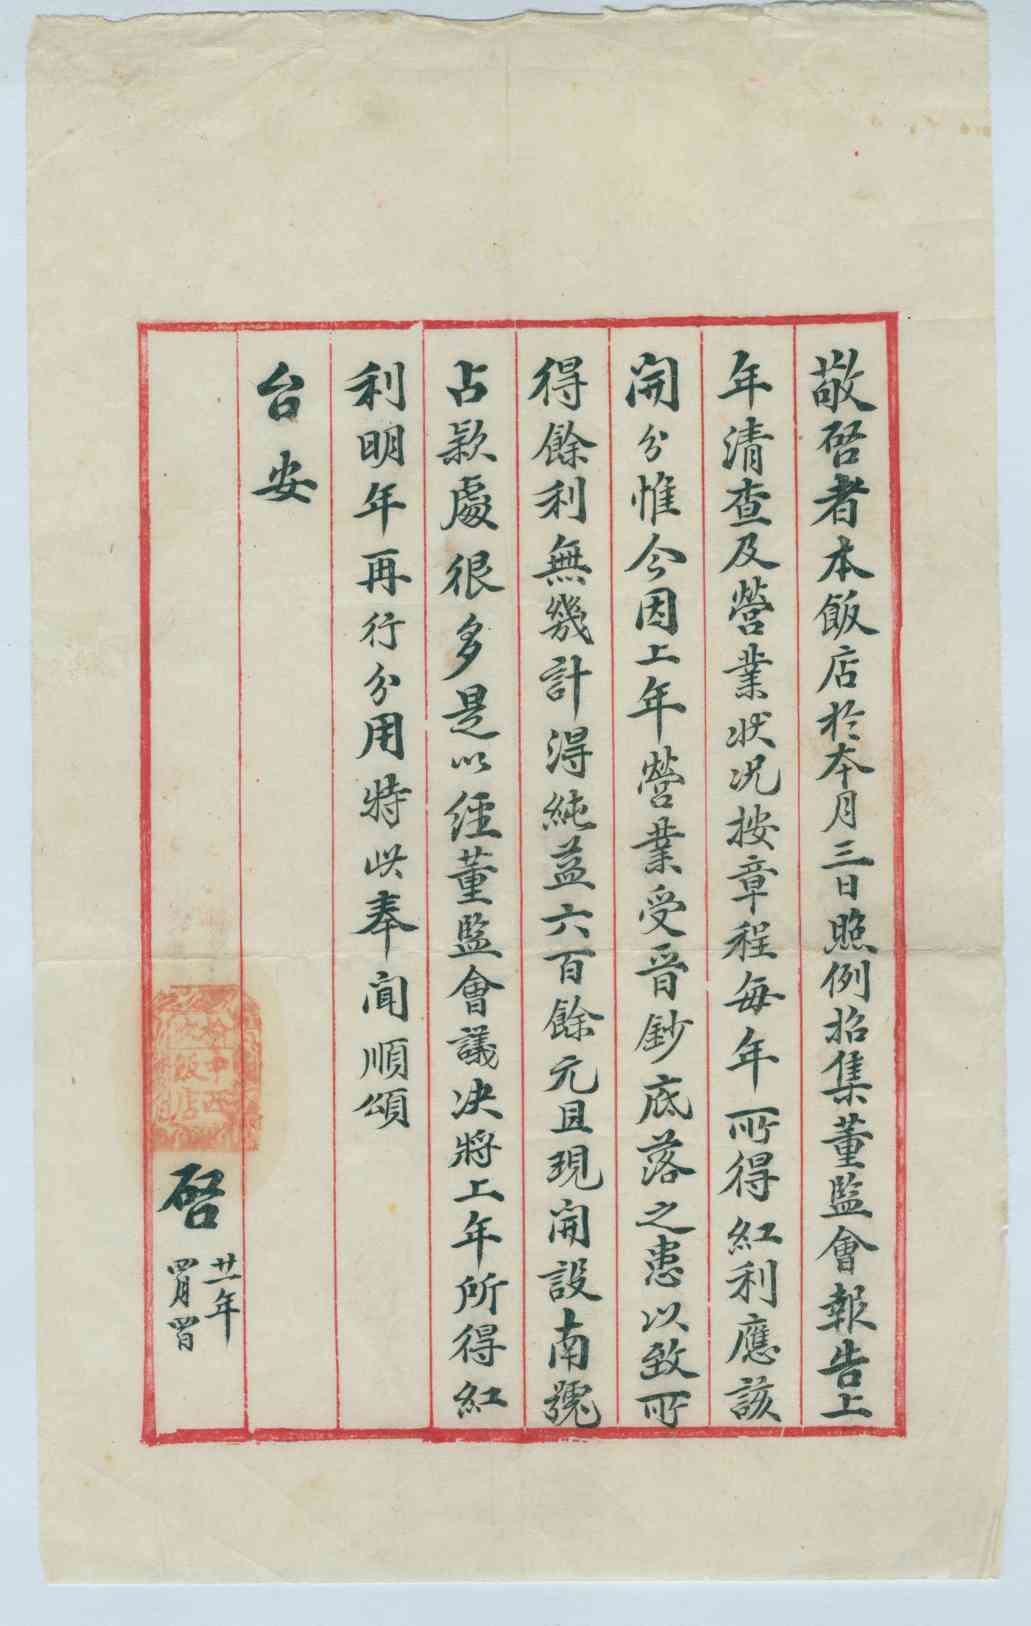 敬啓者本飯店於本月三日照例招集董監會報告上
年清查及營業狀况按章程每年所得紅利應該
開分惟今因上年營業受晉鈔底落之患以致所
得餘利無幾計得純益六百餘元且現開設南號
占款處很多是以經董監會議決將上年所得紅
利明年再行分用特此奉聞順頌
台安
中西
飯店
啓
廿一年
四月四日